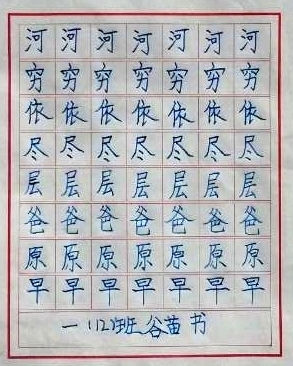 河河河河河河河
穷穷穷穷穷穷穷
依依依依依依依
尽尽尽尽尽尽尽
层层层层层层层
爸爸爸爸爸爸爸
原原原原原原原
早早早早早早早
一(12)班谷苗书